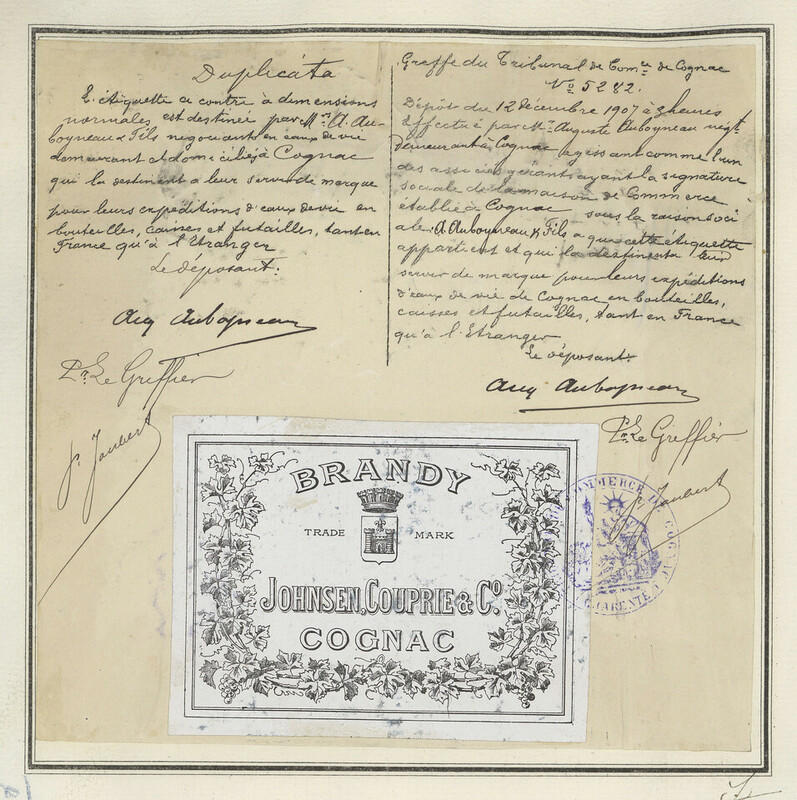 Duplicata
L'étiquette ci contre à dimensions
normales est destinée par Mrs A. Au-
boyneau & Fils négociant en eaux de vie
demeurant et domiciliés à Cognac
qui la destinent à leur servir de marque
pour leurs expéditions d'eaux de vie en
bouteilles, caisses et futailles, tant en
France qu'à l'Etranger
Le déposant:
Aug Auboyneau
Pr. Le Greffier
J. Joubert
Greffe du Tribunal de Comce de Cognac
No 5282.
Dépôt du 12 décembre 1907 à 2 heures
Effectué par Mr Auguste Auboyneau négt
demeurant à Cognac agissant comme l'un
des associés gérants ayant la signature
sociale de la maison de Commerce
établie à Cognac sous la raison soci
ale: A. Auboyneau & Fils a qui cette étiquette
appartient et qui la destinent a leur
servir de marque pour leurs expéditions
d'eaux de vie de Cognac en bouteilles,
caisses et futailles, tant en France
qu'à l'Etranger
Le déposant:
Aug Auboyneau
Pr. Le Greffier
J. Joubert
BRANDY
TRADE MARK
JOHNSEN, COUPRIE & Co.
COGNAC
COMMERCE DE COGNAC
CHARENTE